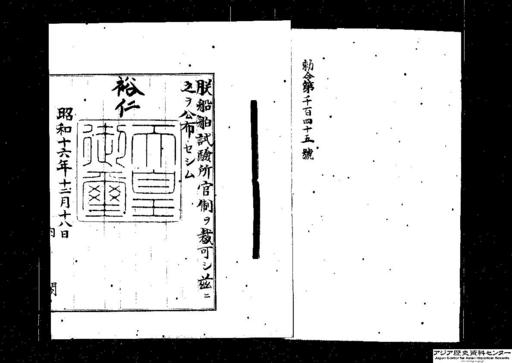 勅令第千百四十五號
朕船舶試驗所官制ヲ裁可シ茲ニ
之ヲ公布セシム
裕仁
天皇
御璽
昭和十六年十二月十八日
内
閣
アジア歴史資料センター
Japan Center for Asian Historical Records